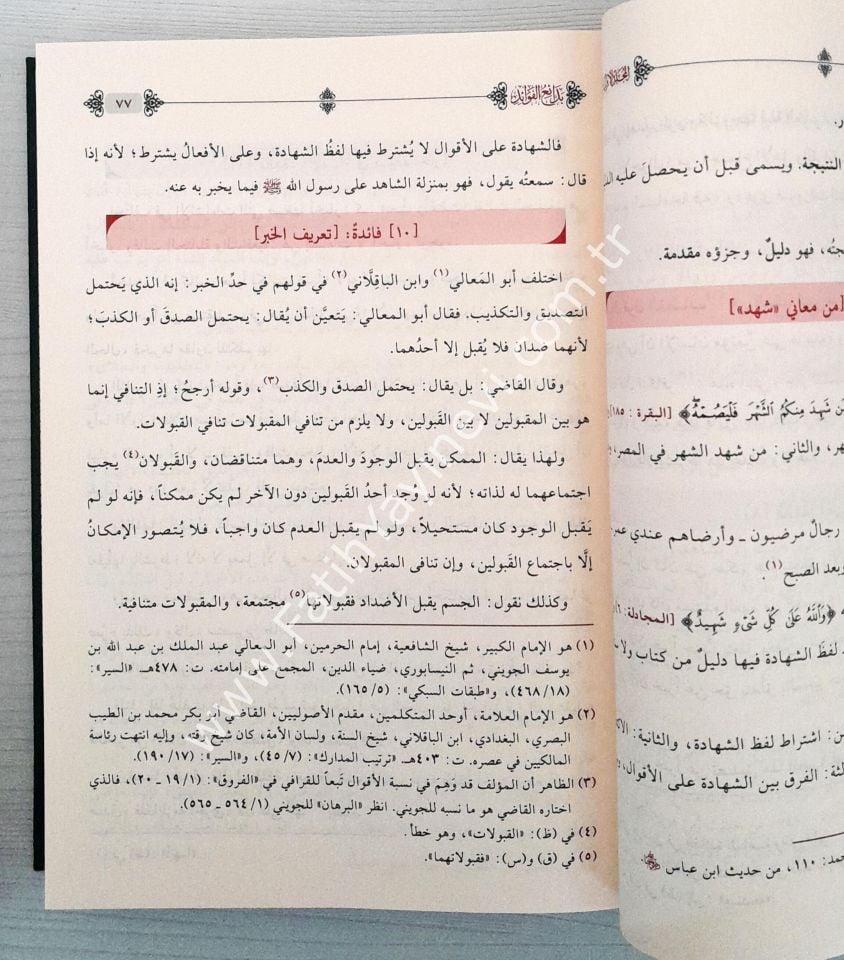 المجلد الأول
النتيجة. ويسمى قبل أن يحصل عليه
فهو دليلٌ، وجزؤه مقدمة.
[من معاني «شهد»]
شَهِدَ مِنكُمُ الشَّهْرَ فَلْيَصُمْهُ﴾ [البقرة: ١٨٥]
والثاني: من شهد الشهر في المصر،
رجالٌ مرضيون ـ وأرضاهم عندي
وبعد الصبح(١).
﴿وَاللَّهُ عَلَىٰ كُلِّ شَيْءٍ شَهِيدٌ﴾ [المجادلة: ٦]
لفظَ الشهادة فيها دليلٌ من كتاب
اشتراط لفظ الشهادة، والثانية:
الفرق بين الشهادة على الأقوال،
١١٠، من حديث ابن عباس
بدائع الفوائد
٧٧
فالشهادة على الأقوال لا يُشترط فيها لفظُ الشهادة، وعلى الأفعال يشترط؛ لأنه إذا
قال: سمعتُه يقول، فهو بمنزلة الشاهد على رسول الله ﷺ فيما يخبر به عنه.
[١٠] فائدةٌ: [تعريف الخبر]
اختلف أبو المَعالي(١) وابن الباقِلَّاني(٢) في قولهم في حدِّ الخبر: إنه الذي يَحتمل
التصديق والتكذيب. فقال أبو المعالي: يَتعيَّن أن يُقال: يحتمل الصدقَ أو الكذبَ؛
لأنهما ضدان فلا يُقبل إلا أحدُهما.
وقال القاضي: بل يقال: يحتمل الصدق والكذب(٣)، وقوله أرجحُ؛ إذِ التنافي إنما
هو بين المقبولين لا بين القَبولين، ولا يلزم من تنافي المقبولات تنافي القَبولات.
ولهذا يقال: الممكن يقبل الوجودَ والعدمَ، وهما متناقضان، والقَبولان(٤) يجب
اجتماعهما له لذاته؛ لأنه لو وُجد أحدُ القَبولين دون الآخر لم يكن ممكناً، فإنه لو لم
يَقبل الوجود كان مستحيلاً، ولو لم يقبل العدم كان واجباً، فلا يُتصور الإمكانُ
إلَّا باجتماع القَبولين، وإن تنافى المقبولان.
وكذلك نقول: الجسم يقبل الأضداد فقبولاتها(٥) مجتمعة، والمقبولات متنافية.
(١) هو الإمام الكبير، شيخ الشافعية، إمام الحرمين، أبو المعالي عبد الملك بن عبد الله بن
يوسف الجويني، ثم النيسابوري، ضياء الدين، المجمع على إمامته. ت: ٤٧٨هـ. «السير»:
(١٨/ ٤٦٨)، و«طبقات السبكي»: (٥/ ١٦٥).
(٢) هو الإمام العلامة، أوحد المتكلمين، مقدم الأصوليين، القاضي أبو بكر محمد بن الطيب
البصري، البغدادي، ابن الباقلاني، شيخ السنة، ولسان الأمة، كان شيخ وقته، وإليه انتهت رئاسة
المالكيين في عصره. ت: ٤٠٣هـ. «ترتيب المدارك»: (٧/ ٤٥)، و«السير»: (١٧/ ١٩٠).
(٣) الظاهر أن المؤلف قد وَهِمَ في نسبة الأقوال تَبعاً للقرافي في «الفروق»: (١/ ١٩ ـ ٢٠)، فالذي
اختاره القاضي هو ما نسبه للجويني. انظر «البرهان» للجويني (١/ ٥٦٤ ـ ٥٦٥).
(٤) في (ظ): «القبولات»، وهو خطأ.
(٥) في (ق) و(س): «فقبولاتهما».
www.FatihYayinevi.com.tr